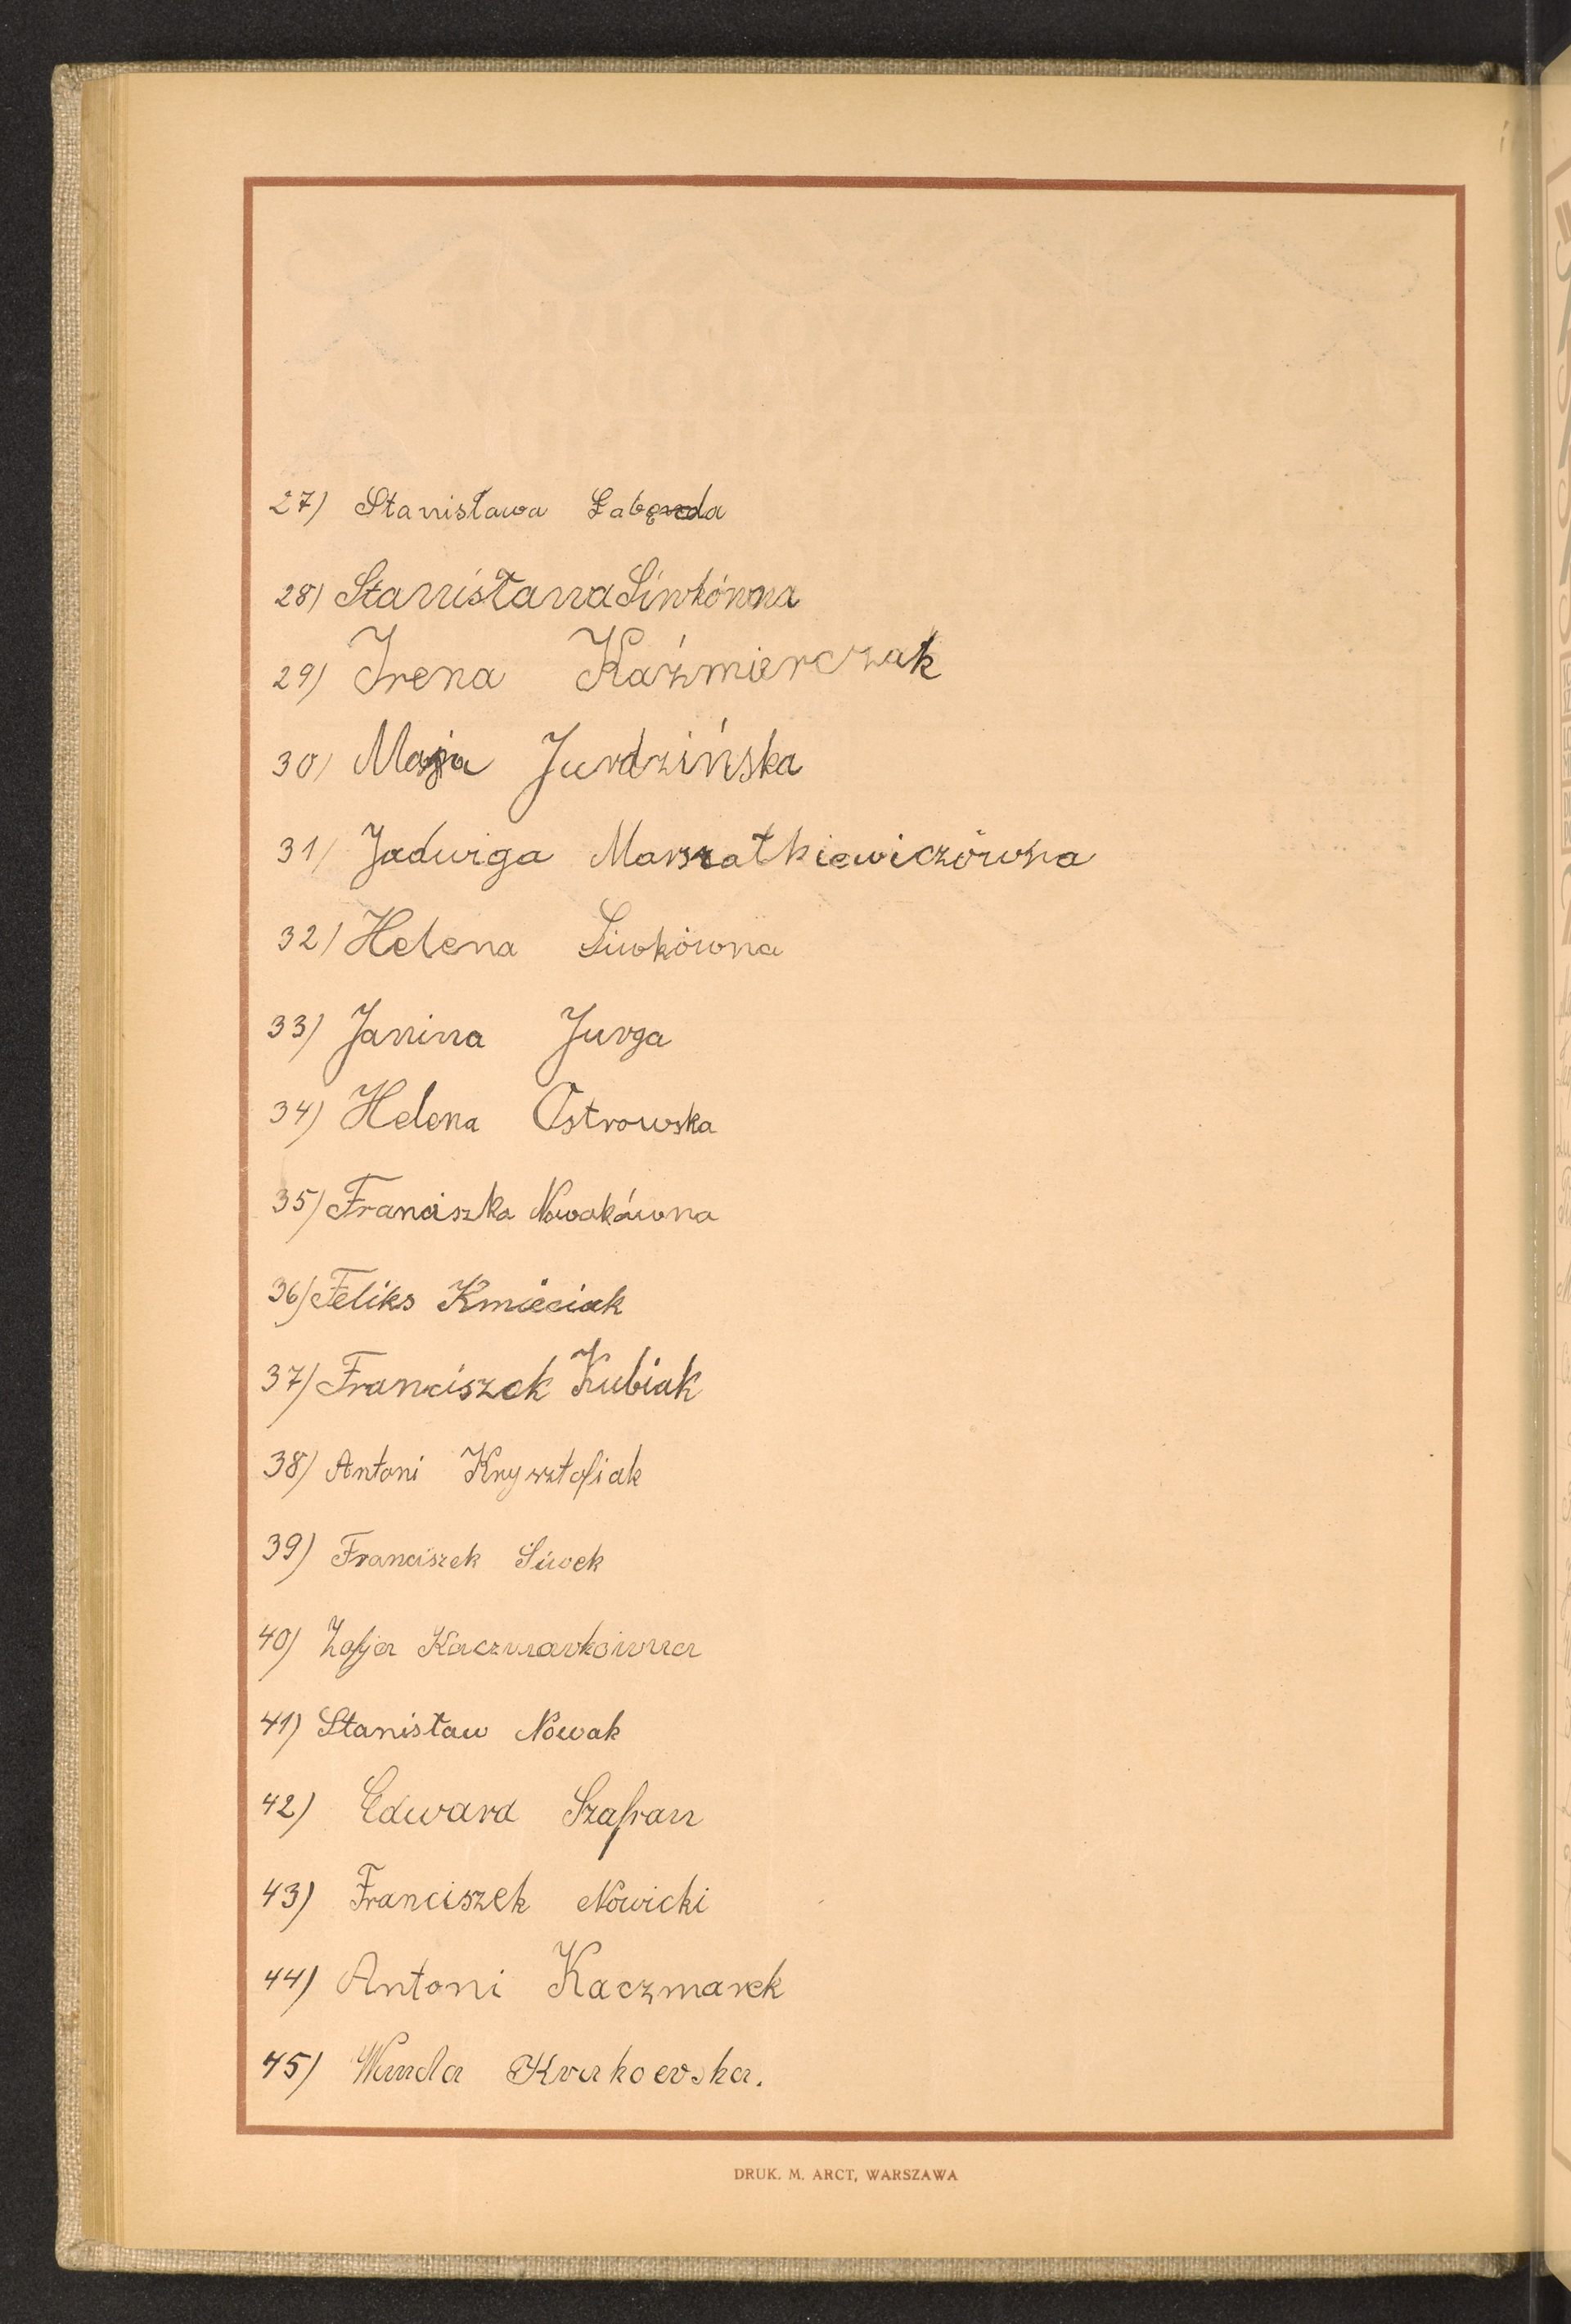 27) Stanisława Łabęnda
28) Stanisława Siwkówna
29) Irena Kaźmierczak
30) Marja Jurdzińska
31) Jadwiga Marszałkiewiczówna
32) Helena Siwkówna
33) Janina Jurga
34) Helena Ostrowska
35) Franciszka Nowakówna
36) Feliks Kmieciak
37) Franciszek Kubiak
38) Antoni Krysztofiak
39) Franciszek Siwek
40) Zofja Kaczmarkówna
41) Stanisław Nowak
42) Edward Szafran
43) Franciszek Nowicki
44) Antoni Kaczmarek
45) Wanda Krakowska.
DRUK. M. ARCT, WARSZAWA